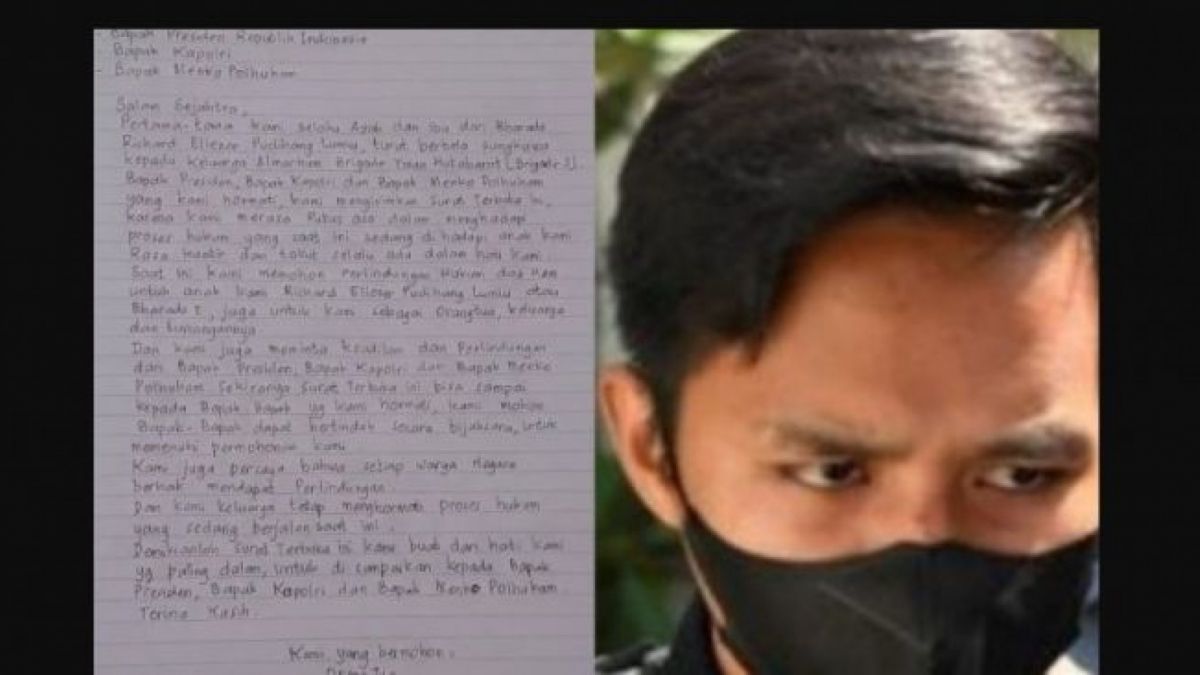 - Bapak Presiden Republik Indonesia
Bapak Kapolri
- Bapak Menko Polhukam
Salam Sejahtra,
Pertama-tama kami selaku Ayah dan ibu dari Bharada
Richard Eliezer Pudihang Lumiu, turut berbela sungkawa
kepada keluarga Almarhum Brigadir Yosua Hutabarat (Brigadir J).
Bapak Presiden, Bapak Kapolri dan Bapak Menko Polhukam
yang kami hormati, kami mengirimkan Surat Terbuka ini,
karena kami merasa Putus asa dalam menghadapi
proses hukum yang saat ini sedang di hadapi anak kami
Rasa kuatir dan takut selalu ada dalam hati kami.
Saat ini kami memohon Perlindungan Hukum dan Ham
untuk anak kami Richard Eliezer Pudihang Lumiu atau
Bharada E, juga untuk kami sebagai Orangtua, keluarga
dan tunangannya
Dan kami juga meminta Keadilan dan Perlindungan
dari Bapak Presiden, Bapak Kapolri dan Bapak Menko
Polhukam Sekiranya Surat Terbuka ini bisa sampai
kepada Bapak Bapak yg kami hormati, kami mohon
Bapak-Bapak dapat bertindak secara bijaksana, untuk
memenuhi permohonan kami
Kami juga percaya bahwa setiap warga Negara
berhak mendapat Perlindungan.
Dan kami keluarga tetap menghormati proses hukum
yang sedang berjalan saat ini.
Demikianlah Surat Terbuka ini kami buat dari hati kami
yg paling dalam, untuk di sampaikan kepada Bapak
Presiden, Bapak Kapolri dan Bapak Menko Polhukam
Terima Kasih.
Kami yang bermohon.